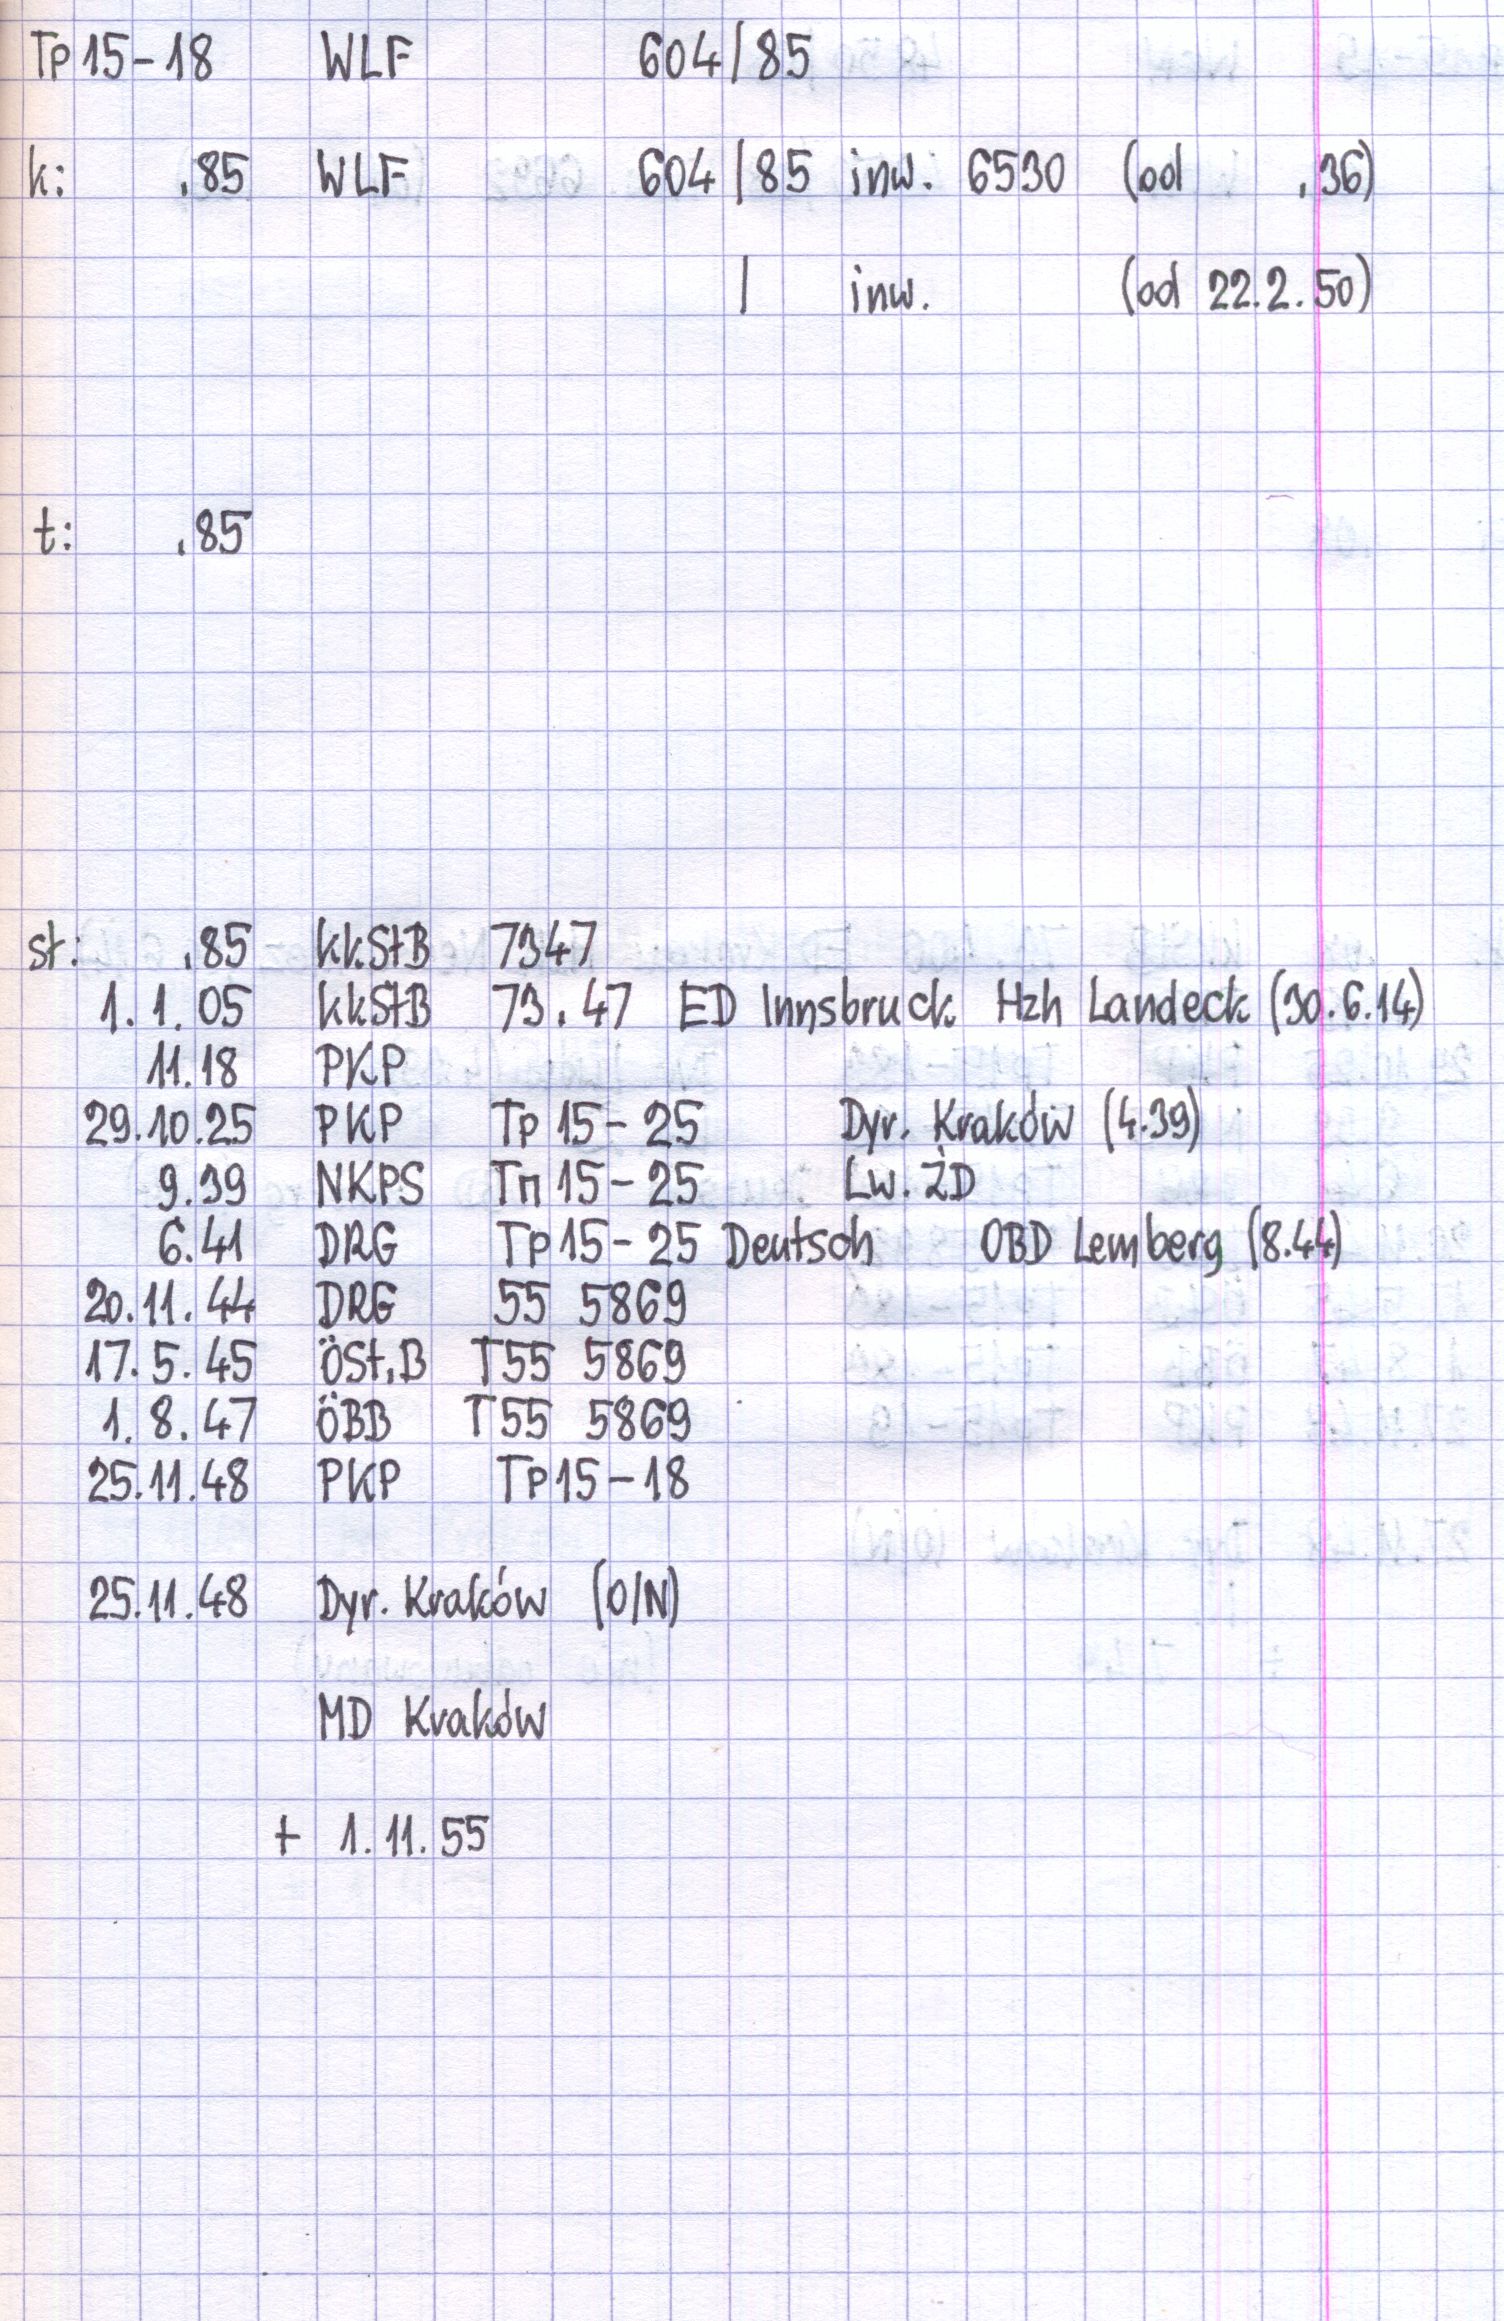 Tp 15-18 WLF 604/85
k: .85 WLF 604/85 inw. 6530 (od .36)
/ inw. (od 22.2.50)
t: .85
st: .85 kkStB 7347
1.1.05 kkStB 73.47 ED Innsbruck Hzh Landeck (30.6.14)
11.18 PKP
29.10.25 PKP Tp 15-25 Dyr. Kraków (4.39)
9.39 NKPS Тп 15-25 Lw. ŻD
6.41 DRG Tp 15-25 Deutsch OBD Lemberg (8.44)
20.11.44 DRG 55 5869
17.5.45 ÖSt.B T55 5869
1.8.47 ÖBB T55 5869
25.11.48 PKP Tp 15-18
25.11.48 Dyr. Kraków (O/N)
MD Kraków
+ 1.11.55